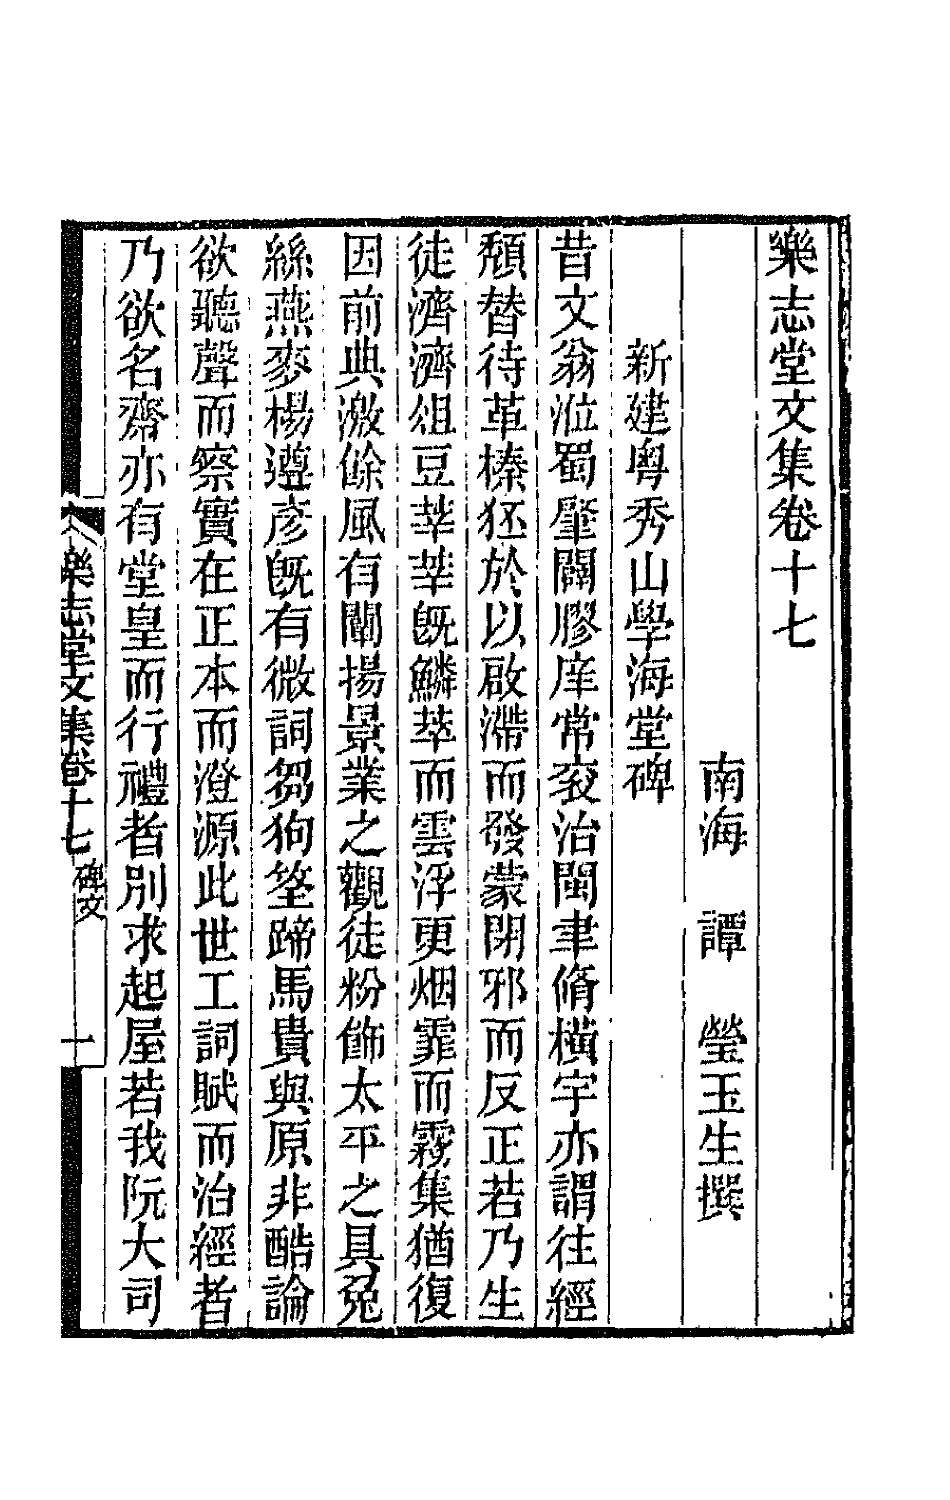 樂志堂文集卷十七
南海 譚 瑩玉生撰
新建粵秀山學海堂碑
昔文翁涖蜀肇闢膠庠常袞治閩聿脩橫宇亦謂往經
頹替待革榛狉於以啟滯而發蒙閉邪而反正若乃生
徒濟濟俎豆莘莘旣鱗萃而雲浮更烟霏而霧集猶復
因前典激餘風有闡揚景業之觀徒粉飾太平之具兔
絲燕麥楊遵彥旣有微詞芻狗筌蹄馬貴與原非酷論
欲聽聲而察實在正本而澄源此世工詞賦而治經者
乃欲名齋亦有堂皇而行禮者別求起屋若我阮大司
樂志堂文集卷十七 碑文 一